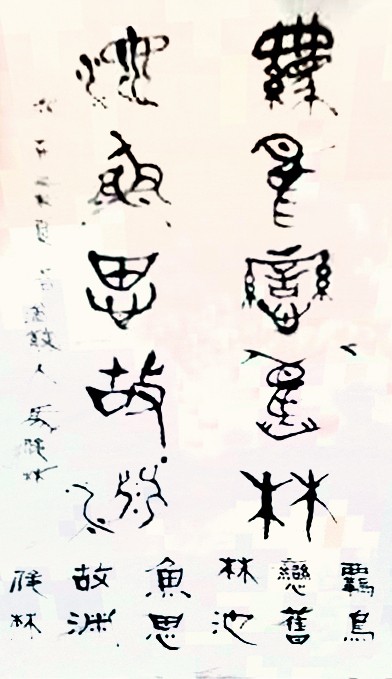 羈鳥戀舊林
池魚思故淵
羈鳥
戀舊
林池
魚思
故淵
林